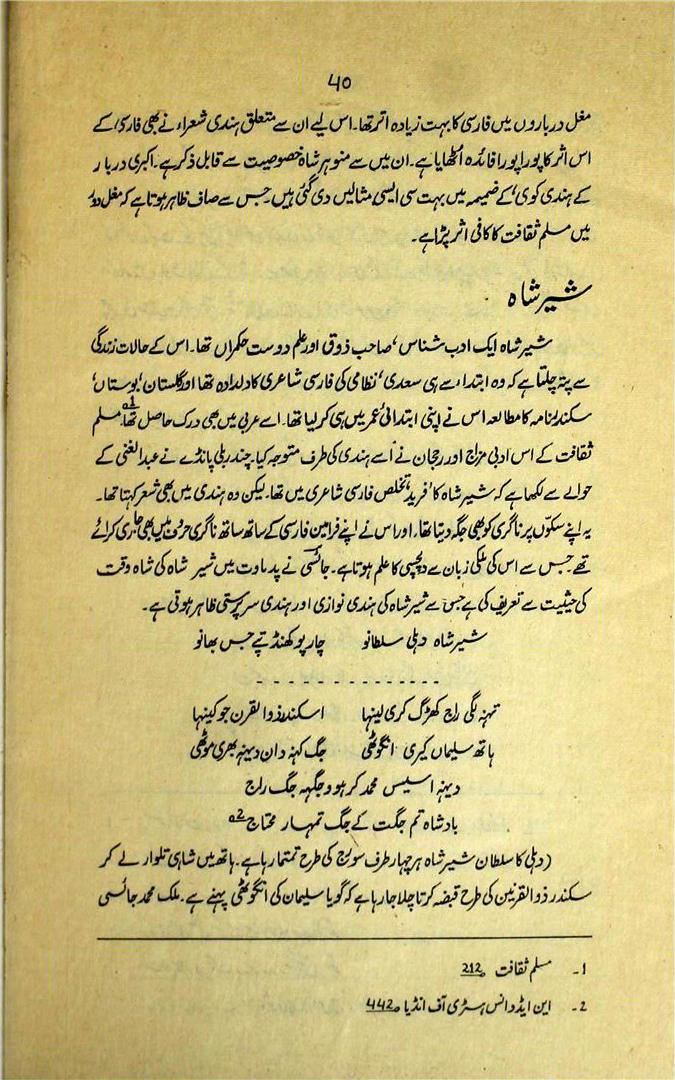 40
مغل درباروں میں فارسی کا بہت زیادہ اثر تھا۔ اس لیے ان سے متعلق ہندی شعراء نے بھی فارسی کے
اس اثر کا پورا پورا فائدہ اٹھایا ہے۔ ان میں سے منوہر شاہ خصوصیت سے قابل ذکر ہے۔ اکبری دربار
کے ہندی کوی، کے ضمیمہ میں بہت سی ایسی مثالیں دی گئی ہیں۔ جس سے صاف ظاہر ہوتا ہے کہ مغل دور
میں مسلم ثقافت کا کافی اثر پڑا ہے۔
شیر شاہ
شیر شاہ ایک ادب شناس، صاحب ذوق اور علم دوست حکمراں تھا۔ اس کے حالات زندگی
سے پتہ چلتا ہے کہ وہ ابتداء سے ہی سعدی، نظامی کی فارسی شاعری کا دلدادہ تھا اور گلستان، بوستاں،
سکندر نامہ کا مطالعہ اس نے اپنی ابتدائی عمر میں ہی کر لیا تھا۔ اسے عربی میں بھی درک حاصل تھا۔1 مسلم
ثقافت کے اس ادبی مزاج اور رجحان نے اسے ہندی کی طرف متوجہ کیا۔ چندر بلی پانڈے نے عبدالغنی کے
حوالے سے لکھا ہے کہ شیر شاہ کا 'فرید' تخلص فارسی شاعری میں تھا۔ لیکن وہ ہندی میں بھی شعر کہتا تھا۔
یہ اپنے سکوں پر ناگری کو بھی جگہ دیتا تھا۔ اور اس نے اپنے فرامین فارسی کے ساتھ ساتھ ناگری حرف میں بھی جاری کرائے
تھے۔ جس سے اس کی ملکی زبان سے دلچسپی کا علم ہوتا ہے۔ جائسی نے پدماوت میں شیر شاہ کی شاہ وقت
کی حیثیت سے تعریف کی ہے جس سے شیر شاہ کی ہندی نوازی اور ہندی سرپرستی ظاہر ہوتی ہے۔
شیر شاہ دہلی سلطانو چارپو کھنڈ تپے جس بھانو
- - - - - - - - - - - - - -
تہنہ لگی راج کھڑگ کری لینہا اسکندر ذوالقرن جو کینہا
ہاتھ سلیماں کیری انگوٹھی جگ کہنہ دان دینہہ بھری موٹھی
دینہہ اسیس محمد کرہو وجگہہ جگ راج
بادشاہ تم جگت کے جگ تمہار محتاج2
(دہلی کا سلطان شیر شاہ ہر چہار طرف سورج کی طرح تمتما رہا ہے۔ ہاتھ میں شاہی تلوار لے کر
سکندر ذوالقرنین کی طرح قبضہ کرتا چلا جا رہا ہے کہ گویا سلیمان کی انگوٹھی پہنے ہے۔ ملک محمد جائسی
1۔ مسلم ثقافت ص 212
2۔ این ایڈوانس ہسٹری آف انڈیا ص 442